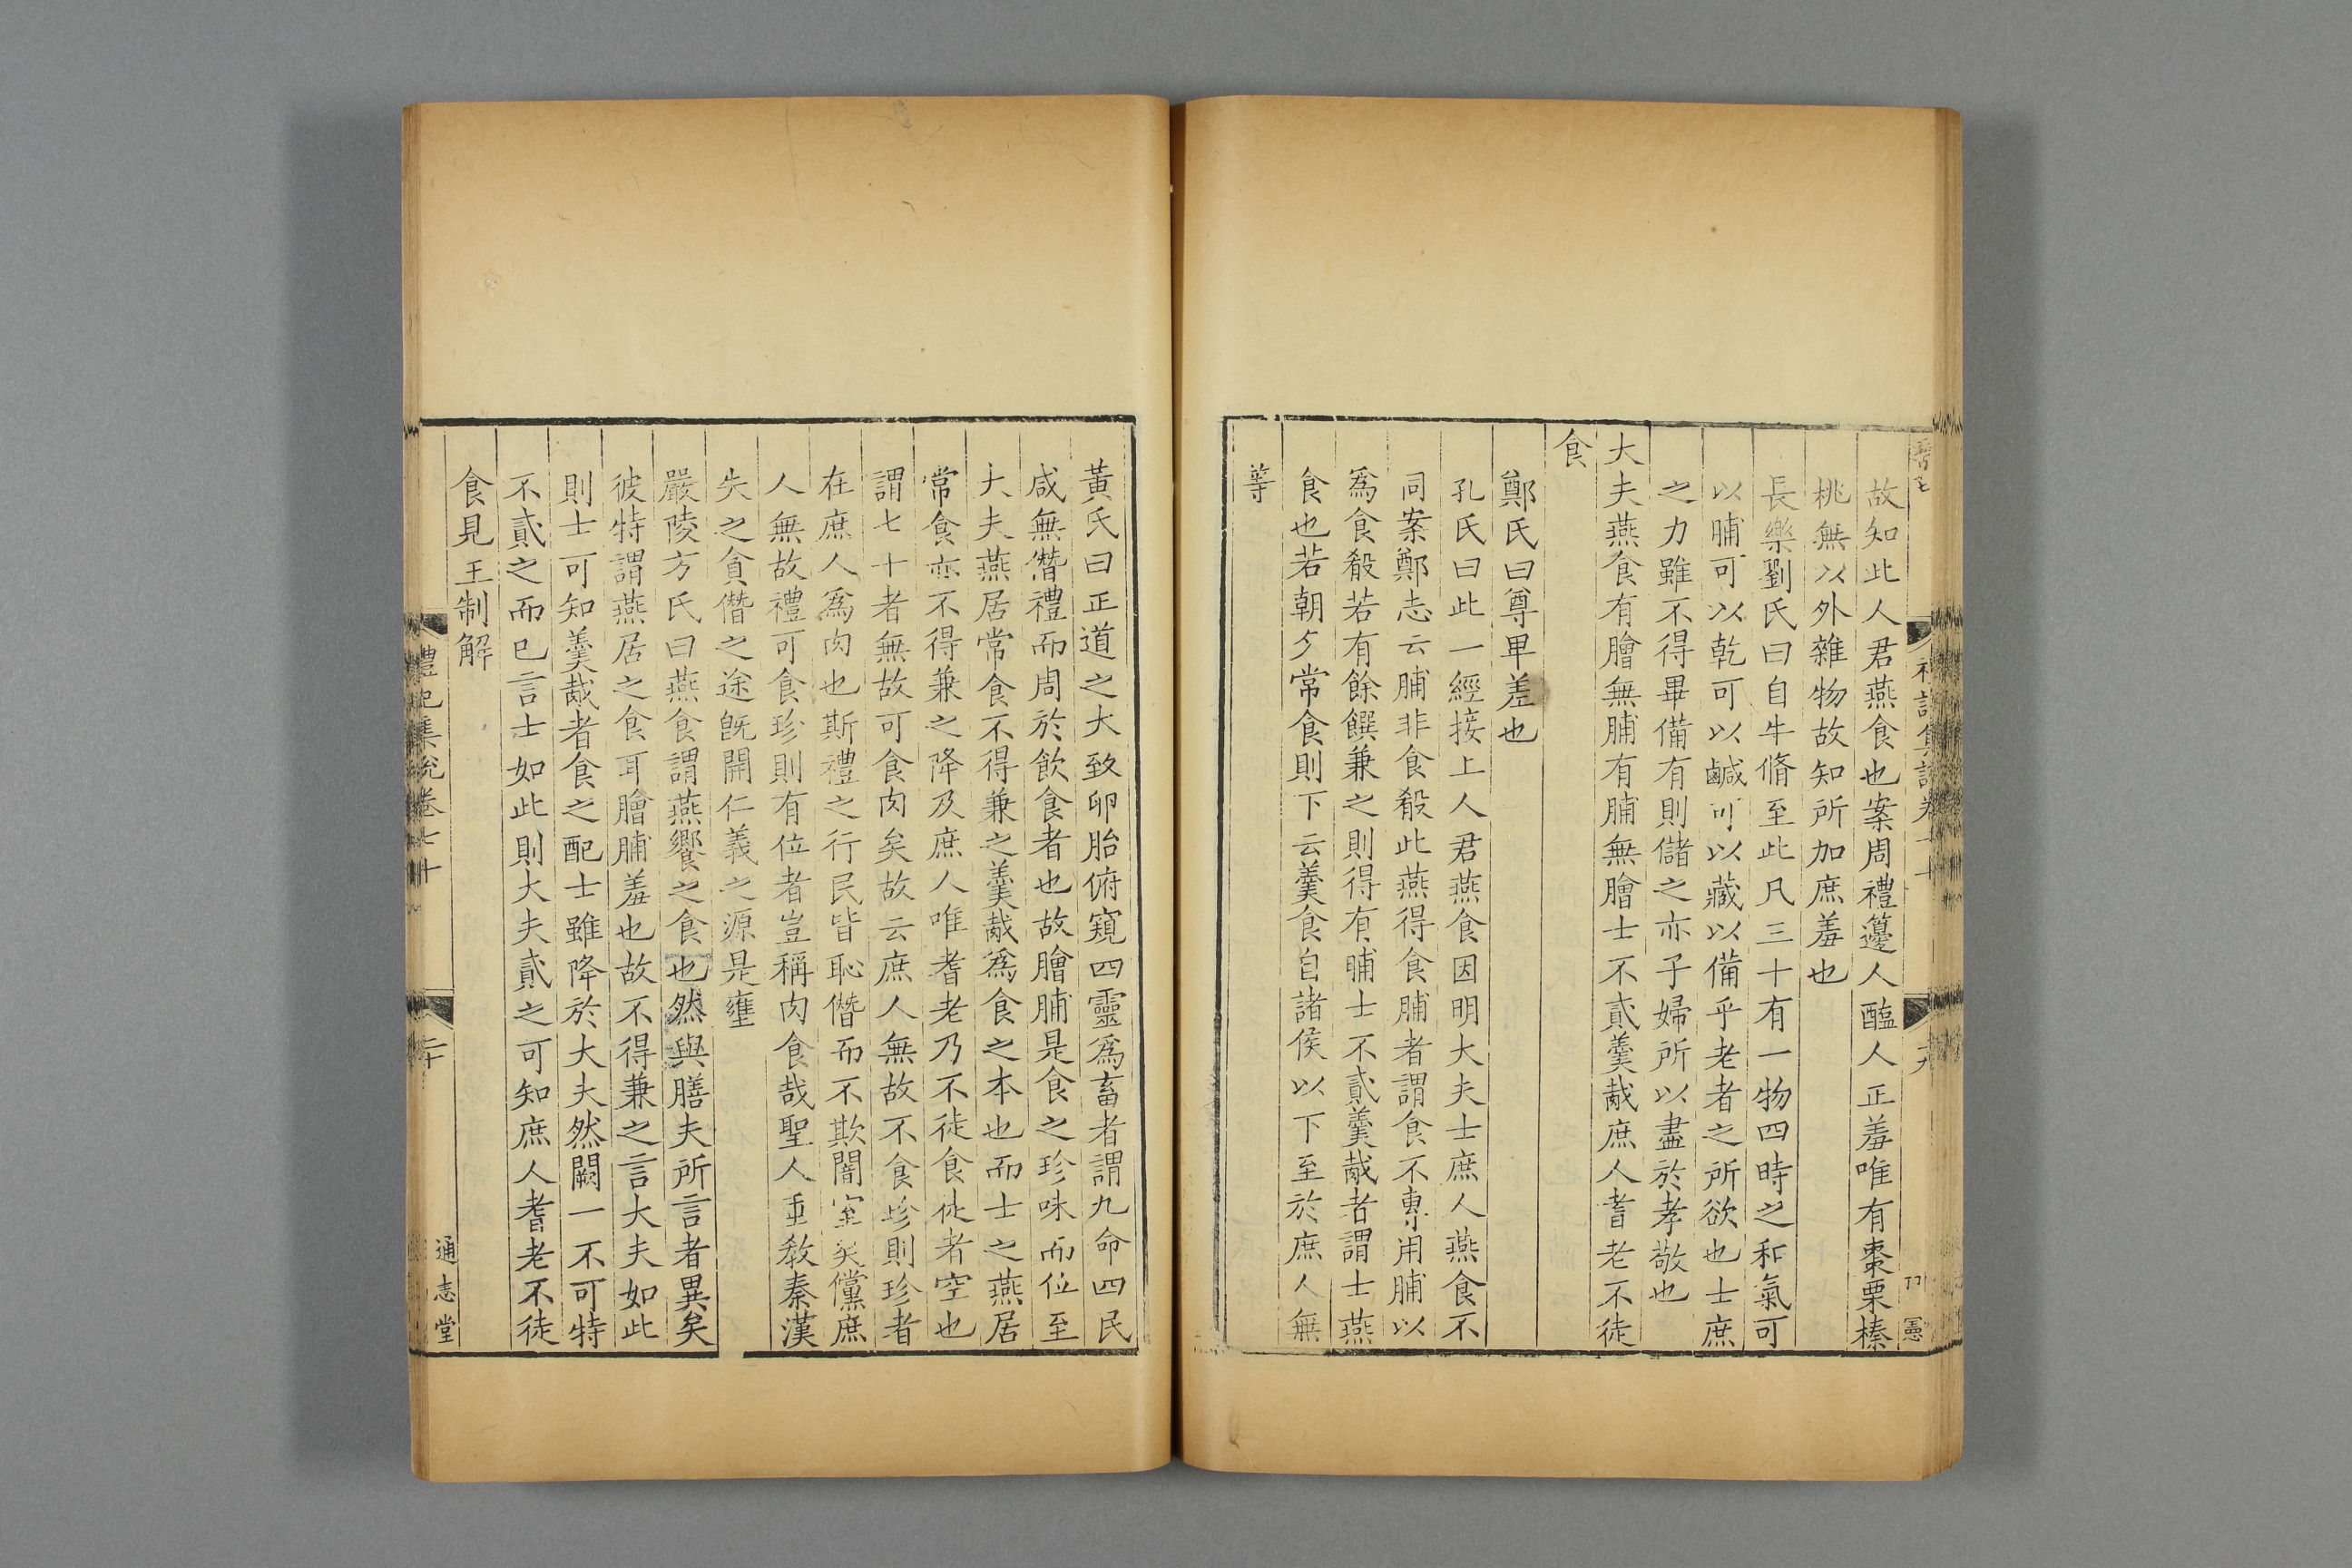 故知此人君燕食也案周禮籩人醢人正羞唯有棗栗榛
桃無以外雜物故知所加庶羞也
長樂劉氏曰自牛脩至此凡三十有一物四時之和氣可
以脯可以乾可以鹹可以藏以備乎老者之所欲也士庶
之力雖不得畢備有則儲之亦子婦所以盡於孝敬也
大夫燕食有膾無脯有脯無膾士不貳羹胾庶人耆老不徒
食
鄭氏曰尊卑差也
孔氏曰此一經接上人君燕食因明大夫士庶人燕食不
同案鄭志云脯非食殽此燕得食脯者謂食不專用脯以
爲食殽若有餘饌兼之則得有脯士不貳羹胾者謂士燕
食也若朝夕常食則下云羹食自諸侯以下至於庶人無
等
黃氏曰正道之大致卵胎俯窺四靈爲畜者謂九命四民
咸無僭禮而周於飲食者也故膾脯是食之珍味而位至
大夫燕居常食不得兼之羹胾爲食之本也而士之燕居
常食亦不得兼之降及庶人唯耆老乃不徒食徒者空也
謂七十者無故可食肉矣故云庶人無故不食珍則珍者
在庶人爲肉也斯禮之行民皆恥僭而不欺闇室矣儻庶
人無故禮可食珍則有位者豈稱肉食哉聖人重教秦漢
失之貪僭之途旣開仁義之源是壅
嚴陵方氏曰燕食謂燕饗之食也然與膳夫所言者異矣
彼特謂燕居之食耳膾脯羞也故不得兼之言大夫如此
則士可知羹胾者食之配士雖降於大夫然闕一不可特
不貳之而已言士如此則大夫貳之可知庶人耆老不徒
食見王制解
禮記集說卷七十
二十
通志堂